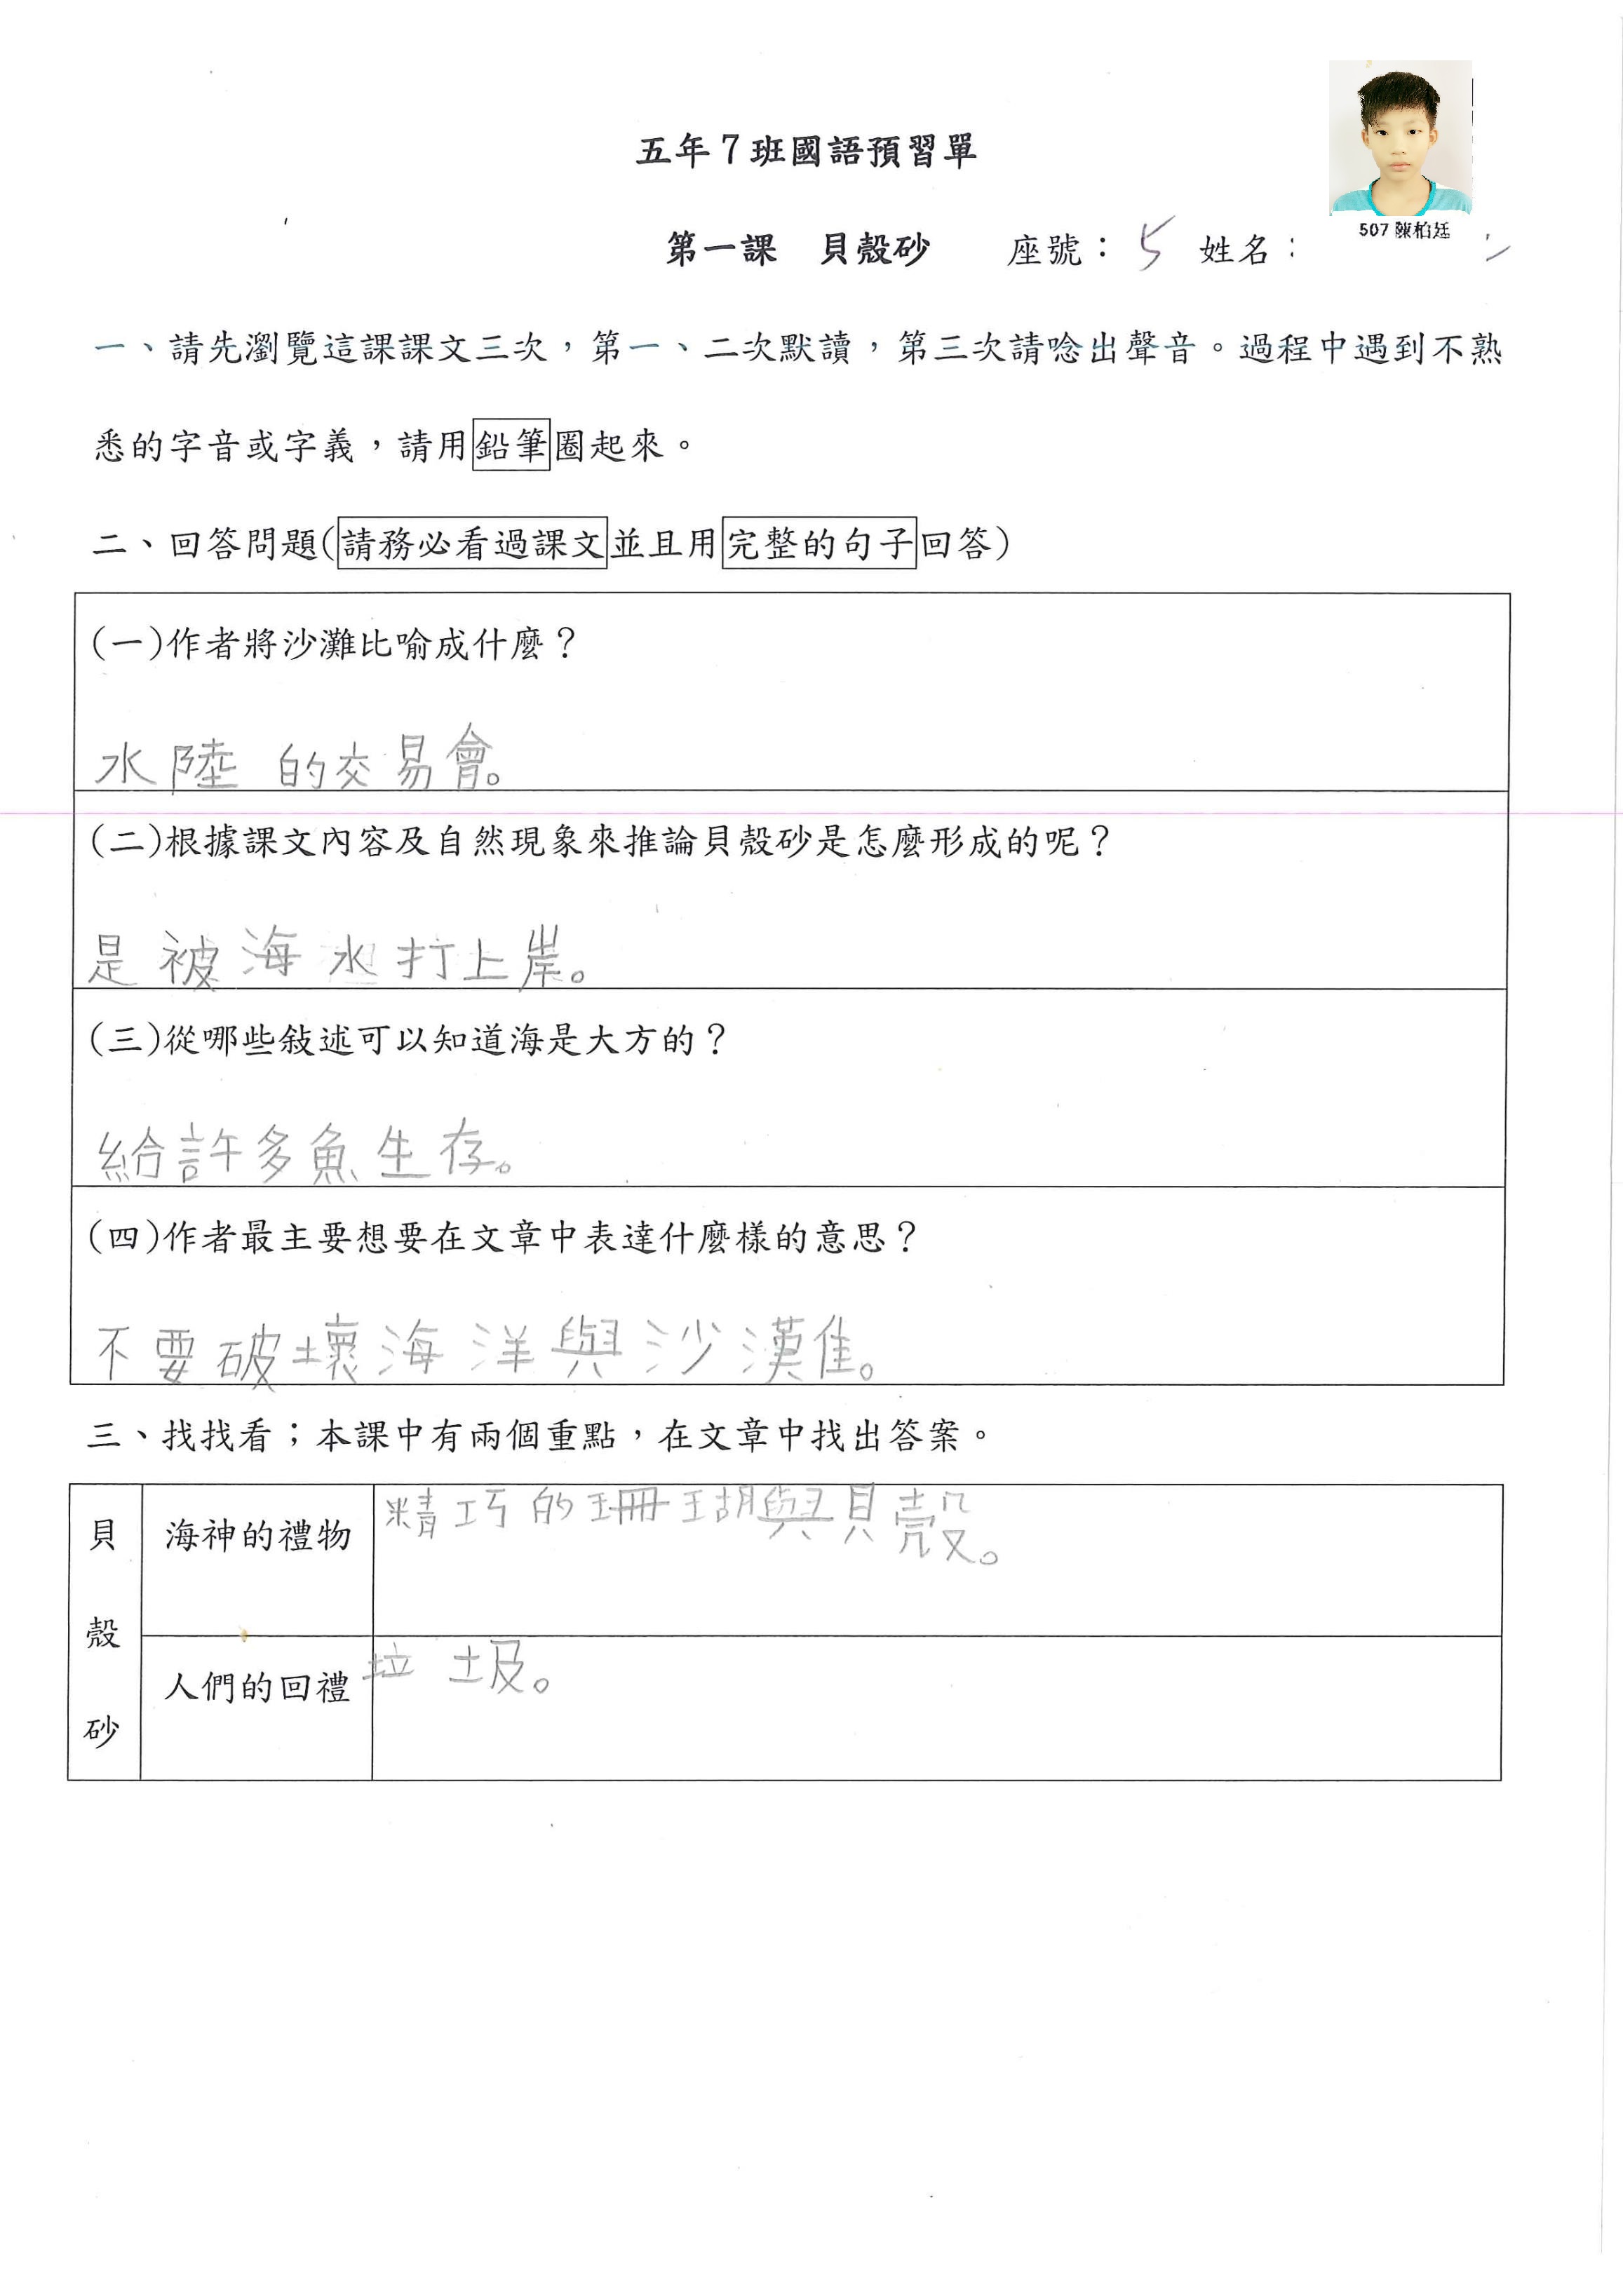 五年7班國語預習單
507 陳柏廷
第一課 貝殼砂 座號：5 姓名：
一、請先瀏覽這課課文三次，第一、二次默讀，第三次請唸出聲音。過程中遇到不熟
悉的字音或字義，請用鉛筆圈起來。
二、回答問題(請務必看過課文並且用完整的句子回答)
(一)作者將沙灘比喻成什麼？
水陸的交易會。
(二)根據課文內容及自然現象來推論貝殼砂是怎麼形成的呢？
是被海水打上岸。
(三)從哪些敍述可以知道海是大方的？
給許多魚生存。
(四)作者最主要想要在文章中表達什麼樣的意思？
不要破壞海洋與沙灘。
三、找找看；本課中有兩個重點，在文章中找出答案。
貝殼砂
海神的禮物 精巧的珊瑚與貝殼。
人們的回禮 垃圾。